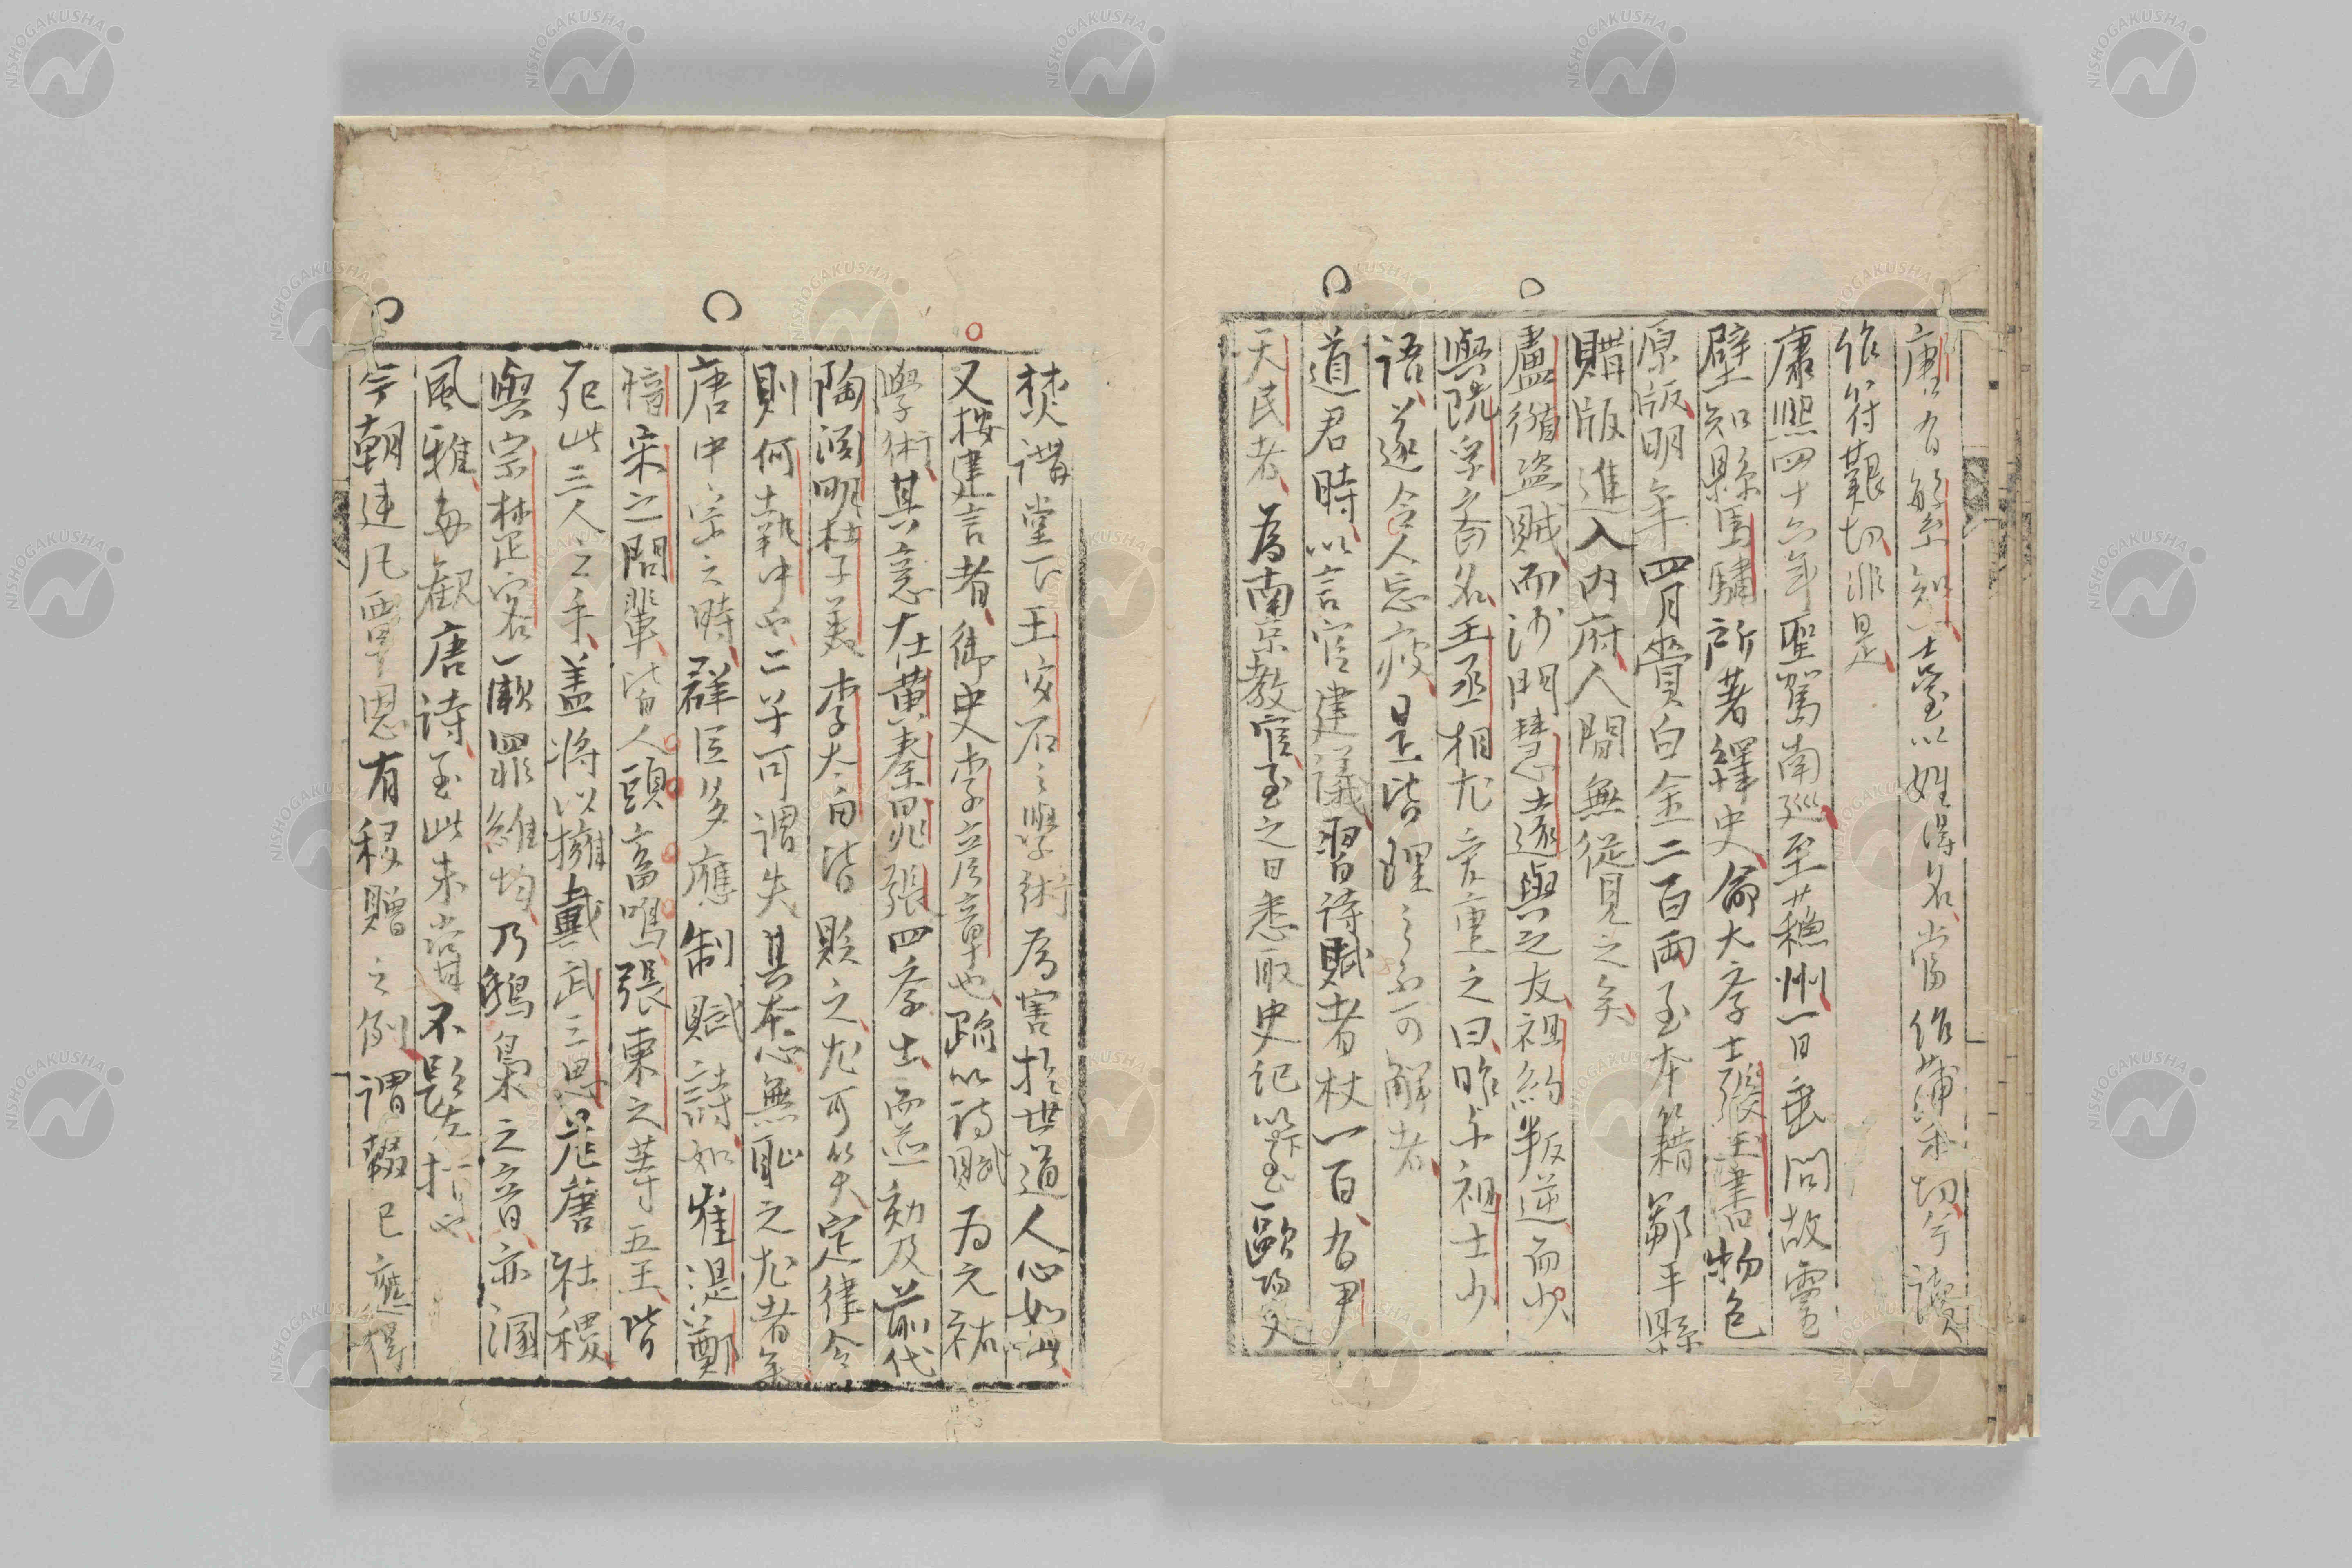 唐有解系
作符艱切非是
康熙四十六年聖駕南巡至蘓州一日垂問故靈
壁知縣馬驌所著繹史命大學士張玉書物色
原版明年四月賞白金二百兩至本籍鄒平縣
購版進入內府人間無從見之矣
盧循盜賊而沙門慧遠與之友祖約叛逆而少
與阮孚齊名王丞相尤齊重之曰昨與祖士少
語遂令人忘疲是皆理之不可解者
道君時以言官建議習詩賦者杖一百有尹
天民者為南京教官至之日悉取史記以下至歐陽文
焚講堂下王安石之學術為害於世道人心如此
又按建言者御史李彥章也疏以詩賦為元祐
學術其意在黃秦晁張四學士而並劾及前代
陶淵明杜子美李太白皆貶之尤可笑定律令
則何執中也二子可謂失其本心無恥之尤者矣
唐中宗之時群臣多應制賦詩如崔湜鄭
愔宋之問輩皆人頭畜鳴張柬之等五王皆
死此三人之手蓋將以擁戴武三思危唐社稷
與宗楚客一厥罪維均乃鴟梟之音亦溷
風雅每觀唐詩至此未嘗不髮指也
今朝廷凡覃恩有移贈之例謂輟已應得